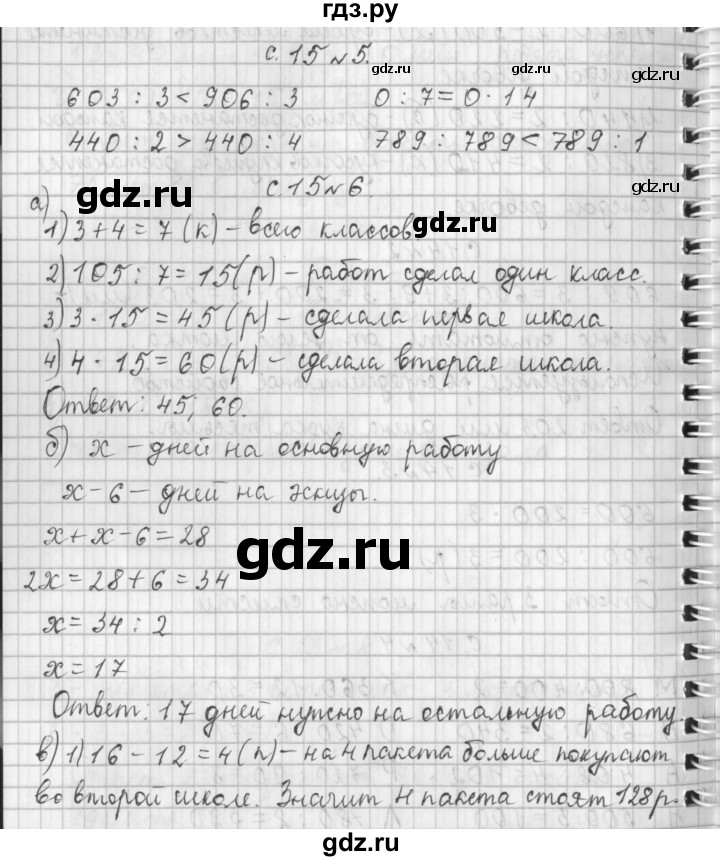 гдз.ру
с. 15 № 5.
gdz.ru
603 : 3 < 906 : 3 0 : 7 = 0 · 14
440 : 2 > 440 : 4 789 : 789 < 789 : 1
gdz.ru
с. 15 № 6
gdz.ru
а)
1) 3 + 4 = 7 (к) – всего классов
gdz.ru
2) 105 : 7 = 15 (р) – работ сделал один класс.
3) 3 · 15 = 45 (р) – сделала первая школа.
4) 4 · 15 = 60 (р) – сделала вторая школа.
Ответ: 45; 60.
б) х – дней на основную работу
х – 6 – дней на эскизы.
х + х – 6 = 28
gdz.ru
2х = 28 + 6 = 34
х = 34 : 2
х = 17
Ответ: 17 дней нужно на остальную работу.
в) 1) 16 – 12 = 4 (п) – на 4 пакета больше покупают
во второй школе. Значит 4 пакета стоят 128 р.
gdz.ru